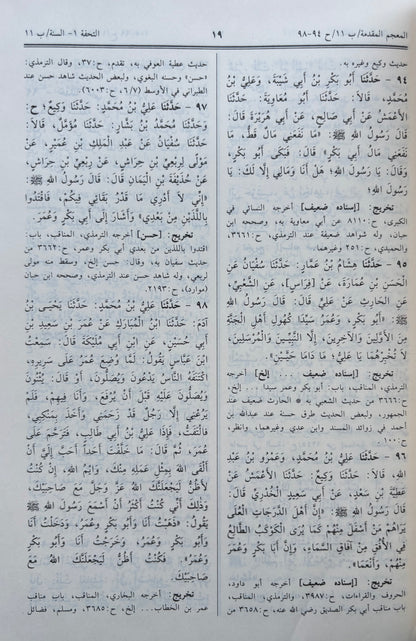 المعجم المقدمة/ب ١١/ح ٩٤-٩٨
١٩
التحفة ١- السنة/ب ١١
حديث وكيع وغيره به.
٩٤ - حَدَّثَنَا أَبُو بَكْرِ بْنُ أَبِي شَيْبَةَ، وَعَلِيُّ بْنُ
مُحَمَّدٍ، قَالَا: حَدَّثَنَا أَبُو مُعَاوِيَةَ: حَدَّثَنَا
الْأَعْمَشُ عَنْ أَبِي صَالِحٍ، عَنْ أَبِي هُرَيْرَةَ قَالَ:
قَالَ رَسُولُ اللهِ ﷺ: «مَا نَفَعَنِي مَالٌ قَطُّ، مَا
نَفَعَنِي مَالُ أَبِي بَكْرٍ» قَالَ: فَبَكَى أَبُو بَكْرٍ،
وَقَالَ: يَا رَسُولَ اللهِ! هَلْ أَنَا وَمَالِي إِلَّا لَكَ، يَا
رَسُولَ اللهِ!
تخريج: [إسناده ضعيف] أخرجه النسائي في
الكبرى، ح:٨١١٠ عن أبي معاوية به، وصححه ابن
حبان، وله شواهد ضعيفة عند الترمذي، ح:٣٦٦١،
والحميدي، ح:٢٥١ وغيرهما.
٩٥ - حَدَّثَنَا هِشَامُ بْنُ عَمَّارٍ: حَدَّثَنَا سُفْيَانُ عَنِ
الْحَسَنِ بْنِ عُمَارَةَ، عَنْ [فِرَاسٍ]، عَنِ الشَّعْبِيِّ،
عَنِ الْحَارِثِ عَنْ عَلِيٍّ قَالَ: قَالَ رَسُولُ اللهِ
ﷺ: «أَبُو بَكْرٍ، وَعُمَرُ سَيِّدَا كُهُولِ أَهْلِ الْجَنَّةِ
مِنَ الْأَوَّلِينَ وَالْآخِرِينَ، إِلَّا النَّبِيِّينَ وَالْمُرْسَلِينَ،
لَا تُخْبِرْهُمَا يَا عَلِيُّ! مَا دَامَا حَيَّيْنِ».
تخريج: [إسناده ضعيف ... إلخ] أخرجه
الترمذي، المناقب، باب: أبو بكر وعمر سيدا ...إلخ،
ح:٣٦٦٦ من حديث الشعبي به * الحارث ضعيف عند
الجمهور، ولبعض الحديث طرق حسنة عند عبدالله بن
أحمد في زوائد المسند وابن عدي وغيرهما، وانظر،
ح:١٠٠.
٩٦ - حَدَّثَنَا عَلِيُّ بْنُ مُحَمَّدٍ، وَعَمْرُو بْنُ عَبْدِ
اللهِ، قَالَا: حَدَّثَنَا وَكِيعٌ: حَدَّثَنَا الْأَعْمَشُ عَنْ
عَطِيَّةَ بْنِ سَعْدٍ، عَنْ أَبِي سَعِيدٍ الْخُدْرِيِّ قَالَ:
قَالَ رَسُولُ اللهِ ﷺ: «إِنَّ أَهْلَ الدَّرَجَاتِ الْعُلَى
يَرَاهُمْ مَنْ أَسْفَلَ مِنْهُمْ كَمَا يُرَى الْكَوْكَبُ الطَّالِعُ
فِي الْأُفُقِ مِنْ آفَاقِ السَّمَاءِ، وَإِنَّ أَبَا بَكْرٍ وَعُمَرَ
مِنْهُمْ، وَأَنْعَمَا».
تخريج: [إسناده ضعيف] أخرجه أبو داود،
الحروف والقراءات، ح:٣٩٨٧، والترمذي، المناقب،
باب مناقب أبي بكر الصديق رضي الله عنه، ح:٣٦٥٨ من
حديث عطية العوفي به، تقدم، ح:٣٧، وقال الترمذي:
«حسن» وحسنه البغوي، ولبعض الحديث شاهد حسن عند
الطبراني في الأوسط (٧/٦، ح:٦٠٠٣).
٩٧ - حَدَّثَنَا عَلِيُّ بْنُ مُحَمَّدٍ: حَدَّثَنَا وَكِيعٌ؛ ح:
وَحَدَّثَنَا مُحَمَّدُ بْنُ بَشَّارٍ: حَدَّثَنَا مُؤَمَّلٌ، قَالَا:
حَدَّثَنَا سُفْيَانُ عَنْ عَبْدِ الْمَلِكِ بْنِ عُمَيْرٍ، عَنْ
مَوْلًى لِرِبْعِيِّ بْنِ حِرَاشٍ، عَنْ رِبْعِيِّ بْنِ حِرَاشٍ،
عَنْ حُذَيْفَةَ بْنِ الْيَمَانِ قَالَ: قَالَ رَسُولُ اللهِ ﷺ:
«إِنِّي لَا أَدْرِي مَا قَدْرُ بَقَائِي فِيكُمْ، فَاقْتَدُوا
بِاللَّذَيْنِ مِنْ بَعْدِي» وَأَشَارَ إِلَى أَبِي بَكْرٍ وَعُمَرَ.
تخريج: [حسن] أخرجه الترمذي، المناقب، باب:
اقتدوا باللذين من بعدي أبي بكر وعمر، ح:٣٦٦٢ من
حديث سفيان به، وقال: حسن إلخ، وسقط منه مولى
لربعي، وله شاهد حسن عند الترمذي، وصححه ابن حبان
(موارد)، ح:٢١٩٣.
٩٨ - حَدَّثَنَا عَلِيُّ بْنُ مُحَمَّدٍ: حَدَّثَنَا يَحْيَى بْنُ
آدَمَ: حَدَّثَنَا ابْنُ الْمُبَارَكِ عَنْ عُمَرَ بْنِ سَعِيدِ بْنِ
أَبِي حُسَيْنٍ، عَنِ ابْنِ أَبِي مُلَيْكَةَ قَالَ: سَمِعْتُ
ابْنَ عَبَّاسٍ يَقُولُ: لَمَّا وُضِعَ عُمَرُ عَلَى سَرِيرِهِ،
اكْتَنَفَهُ النَّاسُ يَدْعُونَ وَيُصَلُّونَ، أَوْ قَالَ: يُثْنُونَ
وَيُصَلُّونَ عَلَيْهِ قَبْلَ أَنْ يُرْفَعَ، وَأَنَا فِيهِمْ، فَلَمْ
يَرُعْنِي إِلَّا رَجُلٌ قَدْ زَحَمَنِي وَأَخَذَ بِمَنْكِبِي،
فَالْتَفَتُّ، فَإِذَا عَلِيُّ بْنُ أَبِي طَالِبٍ، فَتَرَحَّمَ عَلَى
عُمَرَ، ثُمَّ قَالَ: مَا خَلَّفْتَ أَحَدًا أَحَبَّ إِلَيَّ أَنْ
أَلْقَى اللهَ بِمِثْلِ عَمَلِهِ مِنْكَ، وَايْمُ اللهِ، إِنْ كُنْتُ
لَأَظُنُّ لَيَجْعَلَنَّكَ اللهُ عَزَّ وَجَلَّ مَعَ صَاحِبَيْكَ،
وَذٰلِكَ أَنِّي كُنْتُ أَكْثَرُ أَنْ أَسْمَعَ رَسُولَ اللهِ ﷺ
يَقُولُ: «ذَهَبْتُ أَنَا وَأَبُو بَكْرٍ وَعُمَرُ، وَدَخَلْتُ أَنَا
وَأَبُو بَكْرٍ وَعُمَرُ، وَخَرَجْتُ أَنَا وَأَبُو بَكْرٍ
وَعُمَرُ». فَكُنْتُ أَظُنُّ لَيَجْعَلَنَّكَ اللهُ مَعَ
صَاحِبَيْكَ.
تخريج: أخرجه البخاري، المناقب، باب مناقب
عمر بن الخطاب... إلخ، ح:٣٦٨٥، ومسلم، فضائل